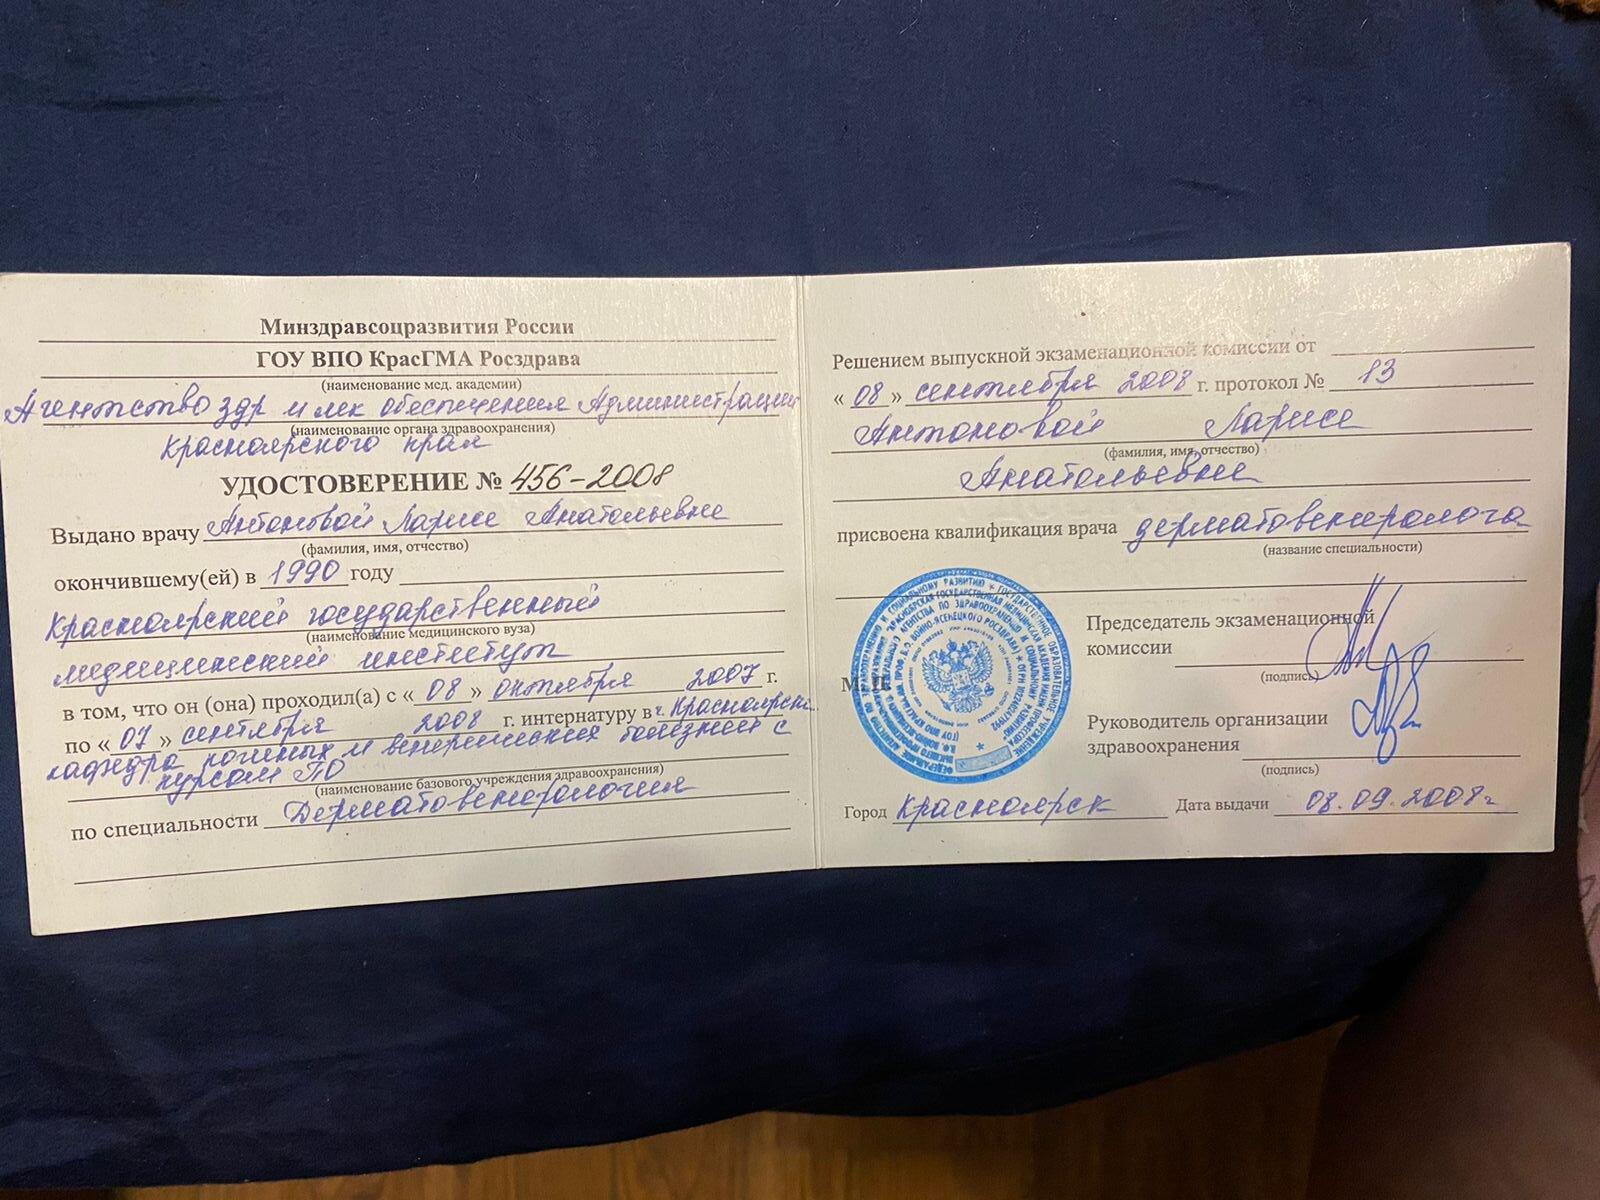 Минздравсоцразвития России
ГОУ ВПО КрасГМА Росздрава
(наименование мед. академии)
Агентство здр и лек обеспечения Администрации
(наименование органа здравоохранения)
Красноярского края
УДОСТОВЕРЕНИЕ № 456-2008
Выдано врачу Антоновой Ларисе Анатольевне
(фамилия, имя, отчество)
окончившему(ей) в 1990 году
Красноярский государственный
(наименование медицинского вуза)
медицинский институт
в том, что он (она) проходил(а) с « 08 » октября 2007 г.
по « 07 » сентября 2008 г. интернатуру в г. Красноярске
кафедра кожных и венерических болезней с
курсом ПО
(наименование базового учреждения здравоохранения)
по специальности Дерматовенерология
Решением выпускной экзаменационной комиссии от
« 08 » сентября 2008 г. протокол № 13
Антоновой Ларисе
(фамилия, имя, отчество)
Анатольевне
присвоена квалификация врача дерматовенеролога
(название специальности)
Председатель экзаменационной
комиссии
(подпись)
М.П.
Руководитель организации
здравоохранения
(подпись)
Город Красноярск Дата выдачи 08.09.2008г